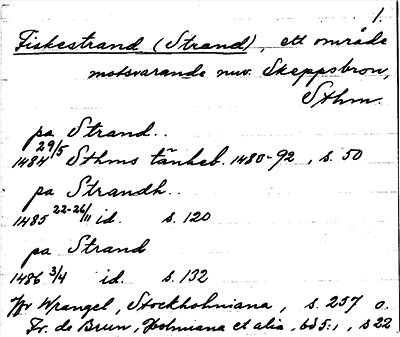 1.
Fiskestrand (Strand), ett område
motsvarande nuv. Skeppsbron,
Sthm.
pa Strand..
1484 29/5 Sthms tänkeb. 1480-92, s. 50
pa Strandh..
1485 22-26/11 id. s. 120
pa Strand
1486 3/4 id. s. 132
Wrangel, Stockholmiana, s. 257 o.
Fr. de Brun, Holmiana et alia, bd 5:1, s 22